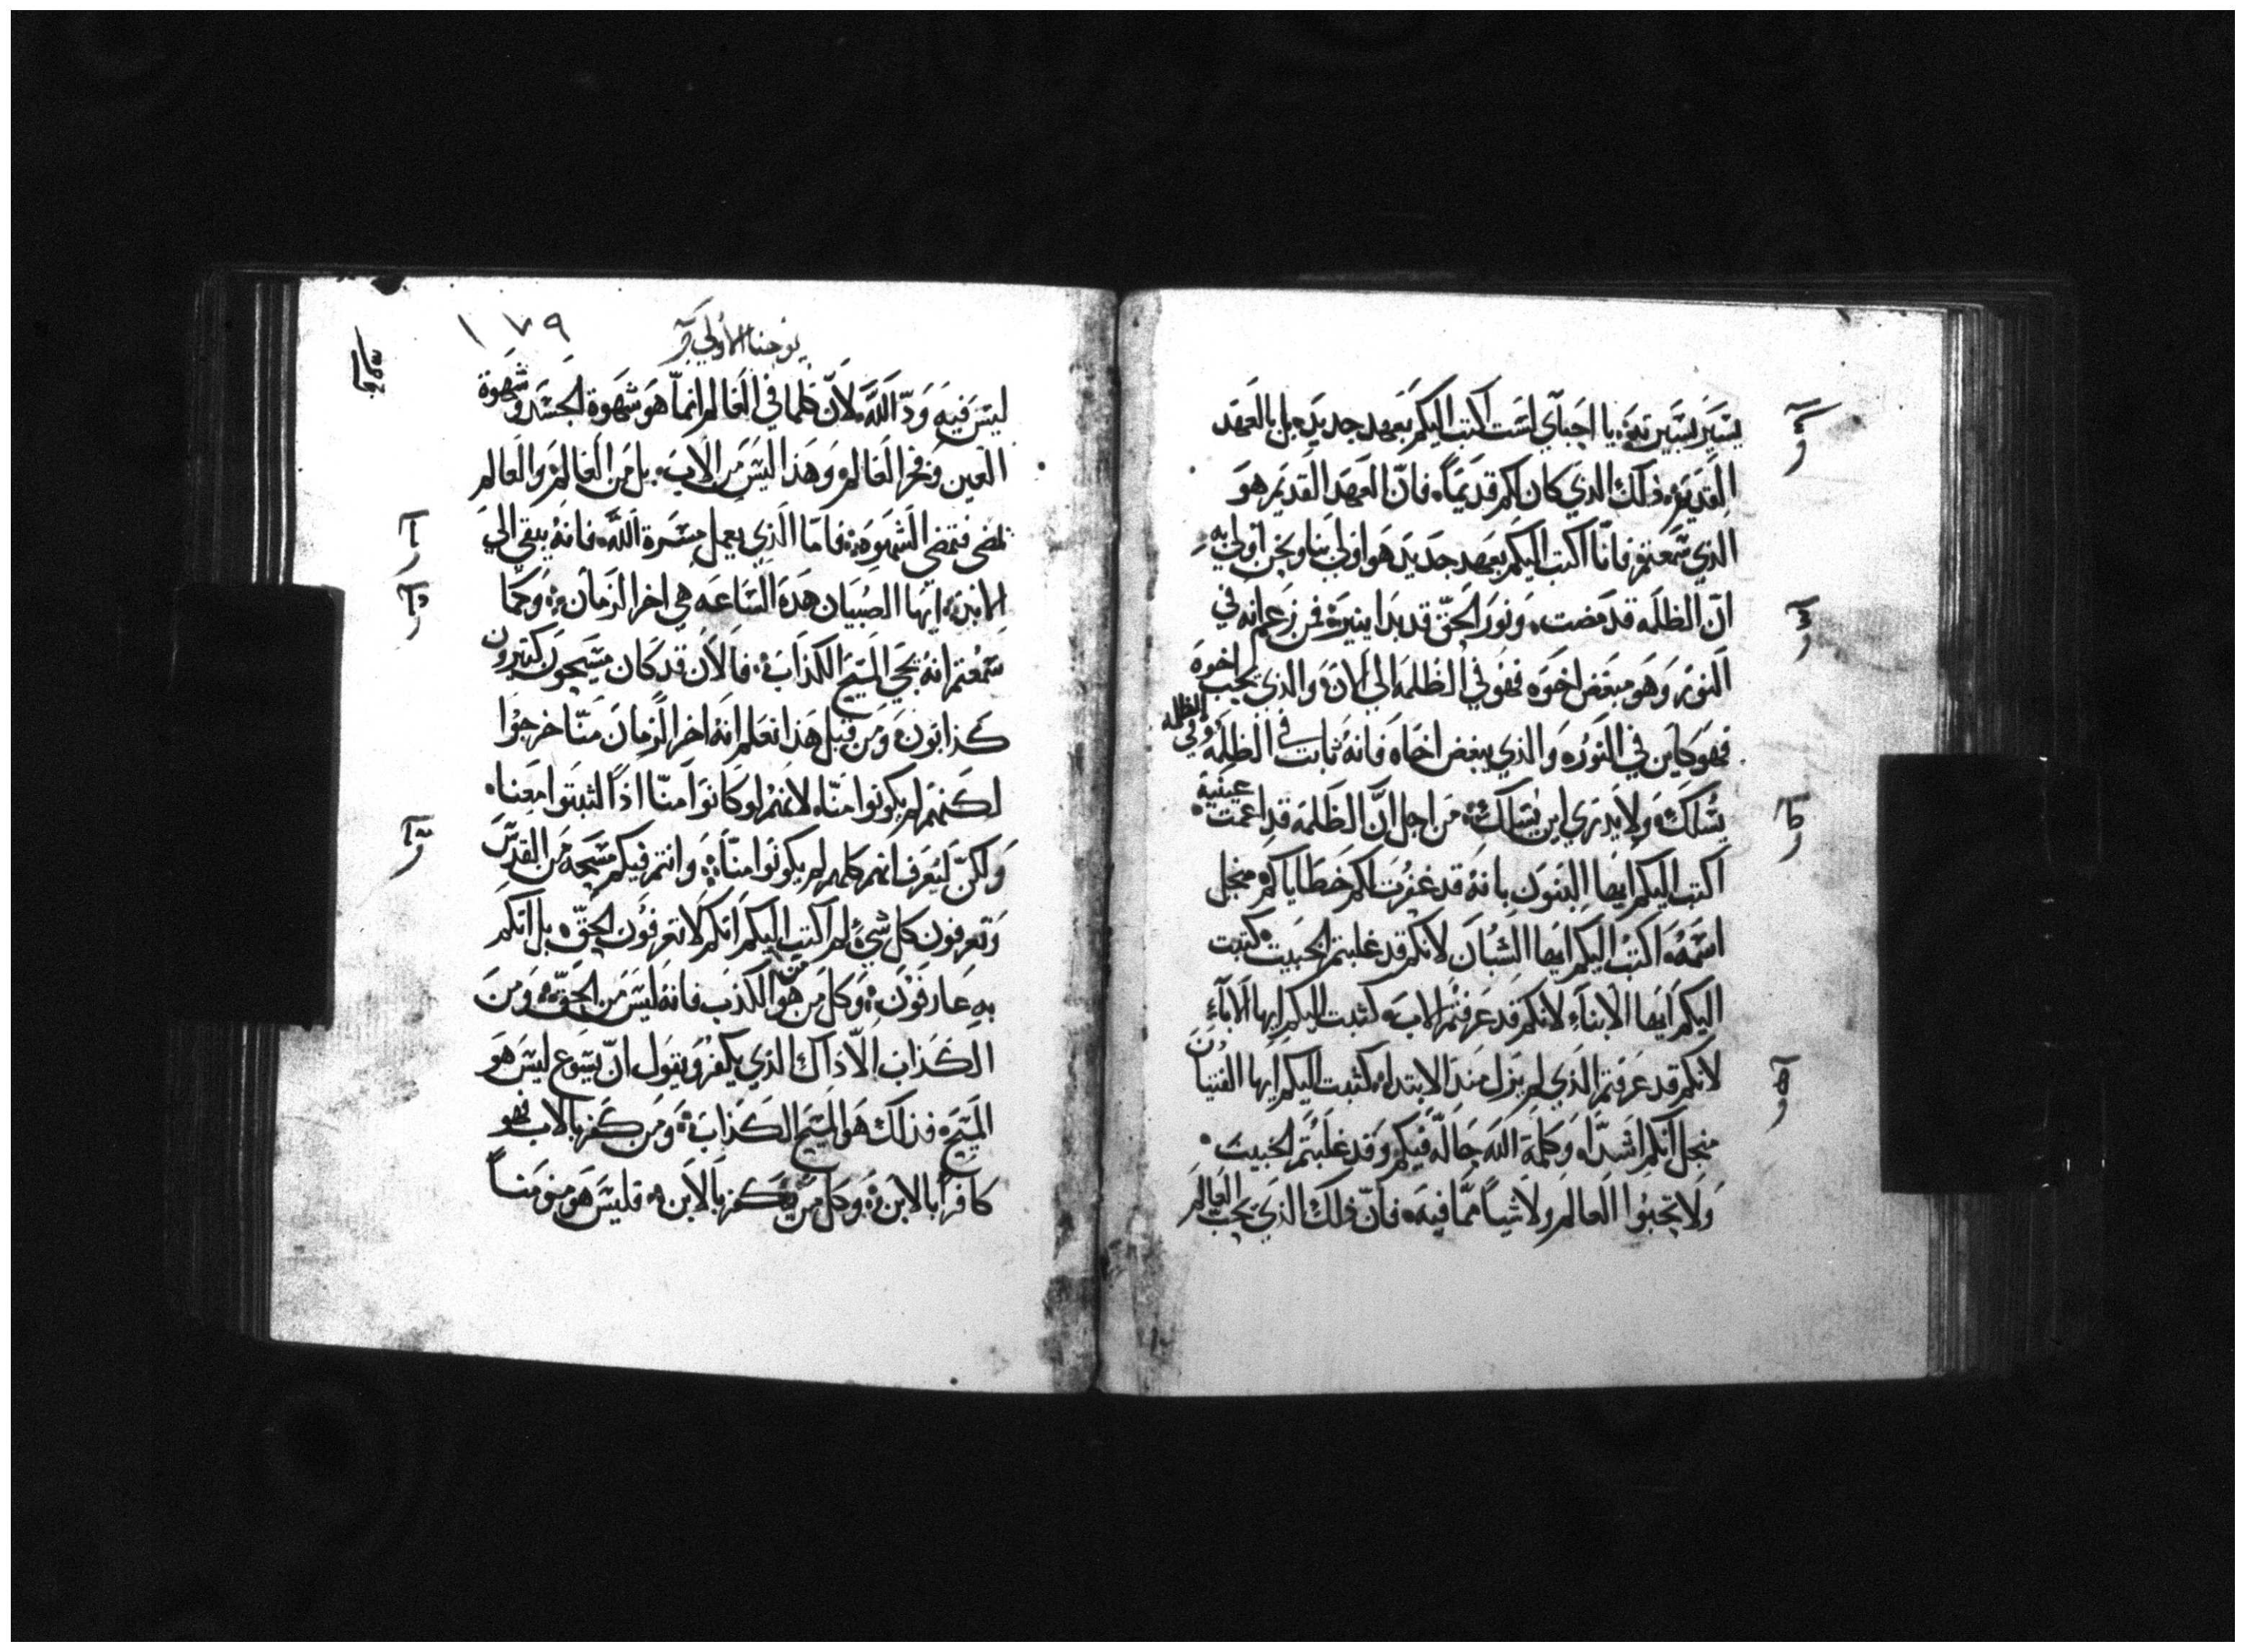 يسير بسيرته يا احباي لست اكتب اليكم بعهد جديد بل بالعهد
القديم ذلك الذي كان لكم قديماً فان العهد القديم هو
الذي سمعتم فانا اكتب اليكم بعهد جديد هو اولي بنا ونحن اولي به
ان الظلمه قد مضت ونور الحق قد بدا ينير فمن زعم انه في
النور وهو مبغض اخوه فهو في الظلمه الي الان والذي يحب اخوه
فهو كاين في النور والذي يبغض اخاه فانه ثابت في الظلمه وفي الظلمه
يسلك ولا يدري اين يسلك من اجل ان الظلمه قد اعمت عينيه
اكتب اليكم ايها البنون بانه قد غفرت لكم خطاياكم منجل
اسمه اكتب اليكم ايها الشبان لانكم قد غلبتم الخبيت كتبت
اليكم ايها الابناء لانكم قد عرفتم الاب كتبت اليكم ايها الاباء
لانكم قد عرفتم الذي لم يزل منذ الابتداء كتبت اليكم ايها الفتيان
منجل انكم اشدا وكلمة الله حاله فيكم وقد غلبتم الخبيت
ولا تحبوا العالم ولا شياً مما فيه فان ذلك الذي يحب العالم
١٧٩
يوحنا الاولي
ليس فيه ود الله لان كلما في العالم انما هو شهوة الجسد وشهوة
العين وفخر العالم وهذا ليس من الاب بل من العالم والعالم
تمضي فتمضي الشهوه فاما الذي يعمل مسرة الله فانه يبقي الي
الابد ايها الصبيان هذه الساعه هي اخر الزمان وكما
سمعتم انه يجي المسيح الكذاب فالان قد كان مسيحون كتيرون
كذابون ومن قبل هذا نعلم انه اخر الزمان منا خرجوا
لكنهم لم يكونوا منا لانهم لو كانوا منا اذاً لثبتوا معنا
ولكن ليعرف انهم كلهم لم يكونوا منا وانتم فيكم مسحه من القدس
وتعرفون كل شي لم اكتب اليكم انكم لا تعرفون الحق بل انكم
به عارفون وكل من هو من الكذب فانه ليس من الحق ومن
الكذاب الا ذاك الذي يكفر ويقول ان يسوع ليس هو
المسيح فذلك هو المسيح الكذاب ومن كفر بالاب فهو
كافراً بالابن وكل من يكفر بالابن فليس هو مومناً